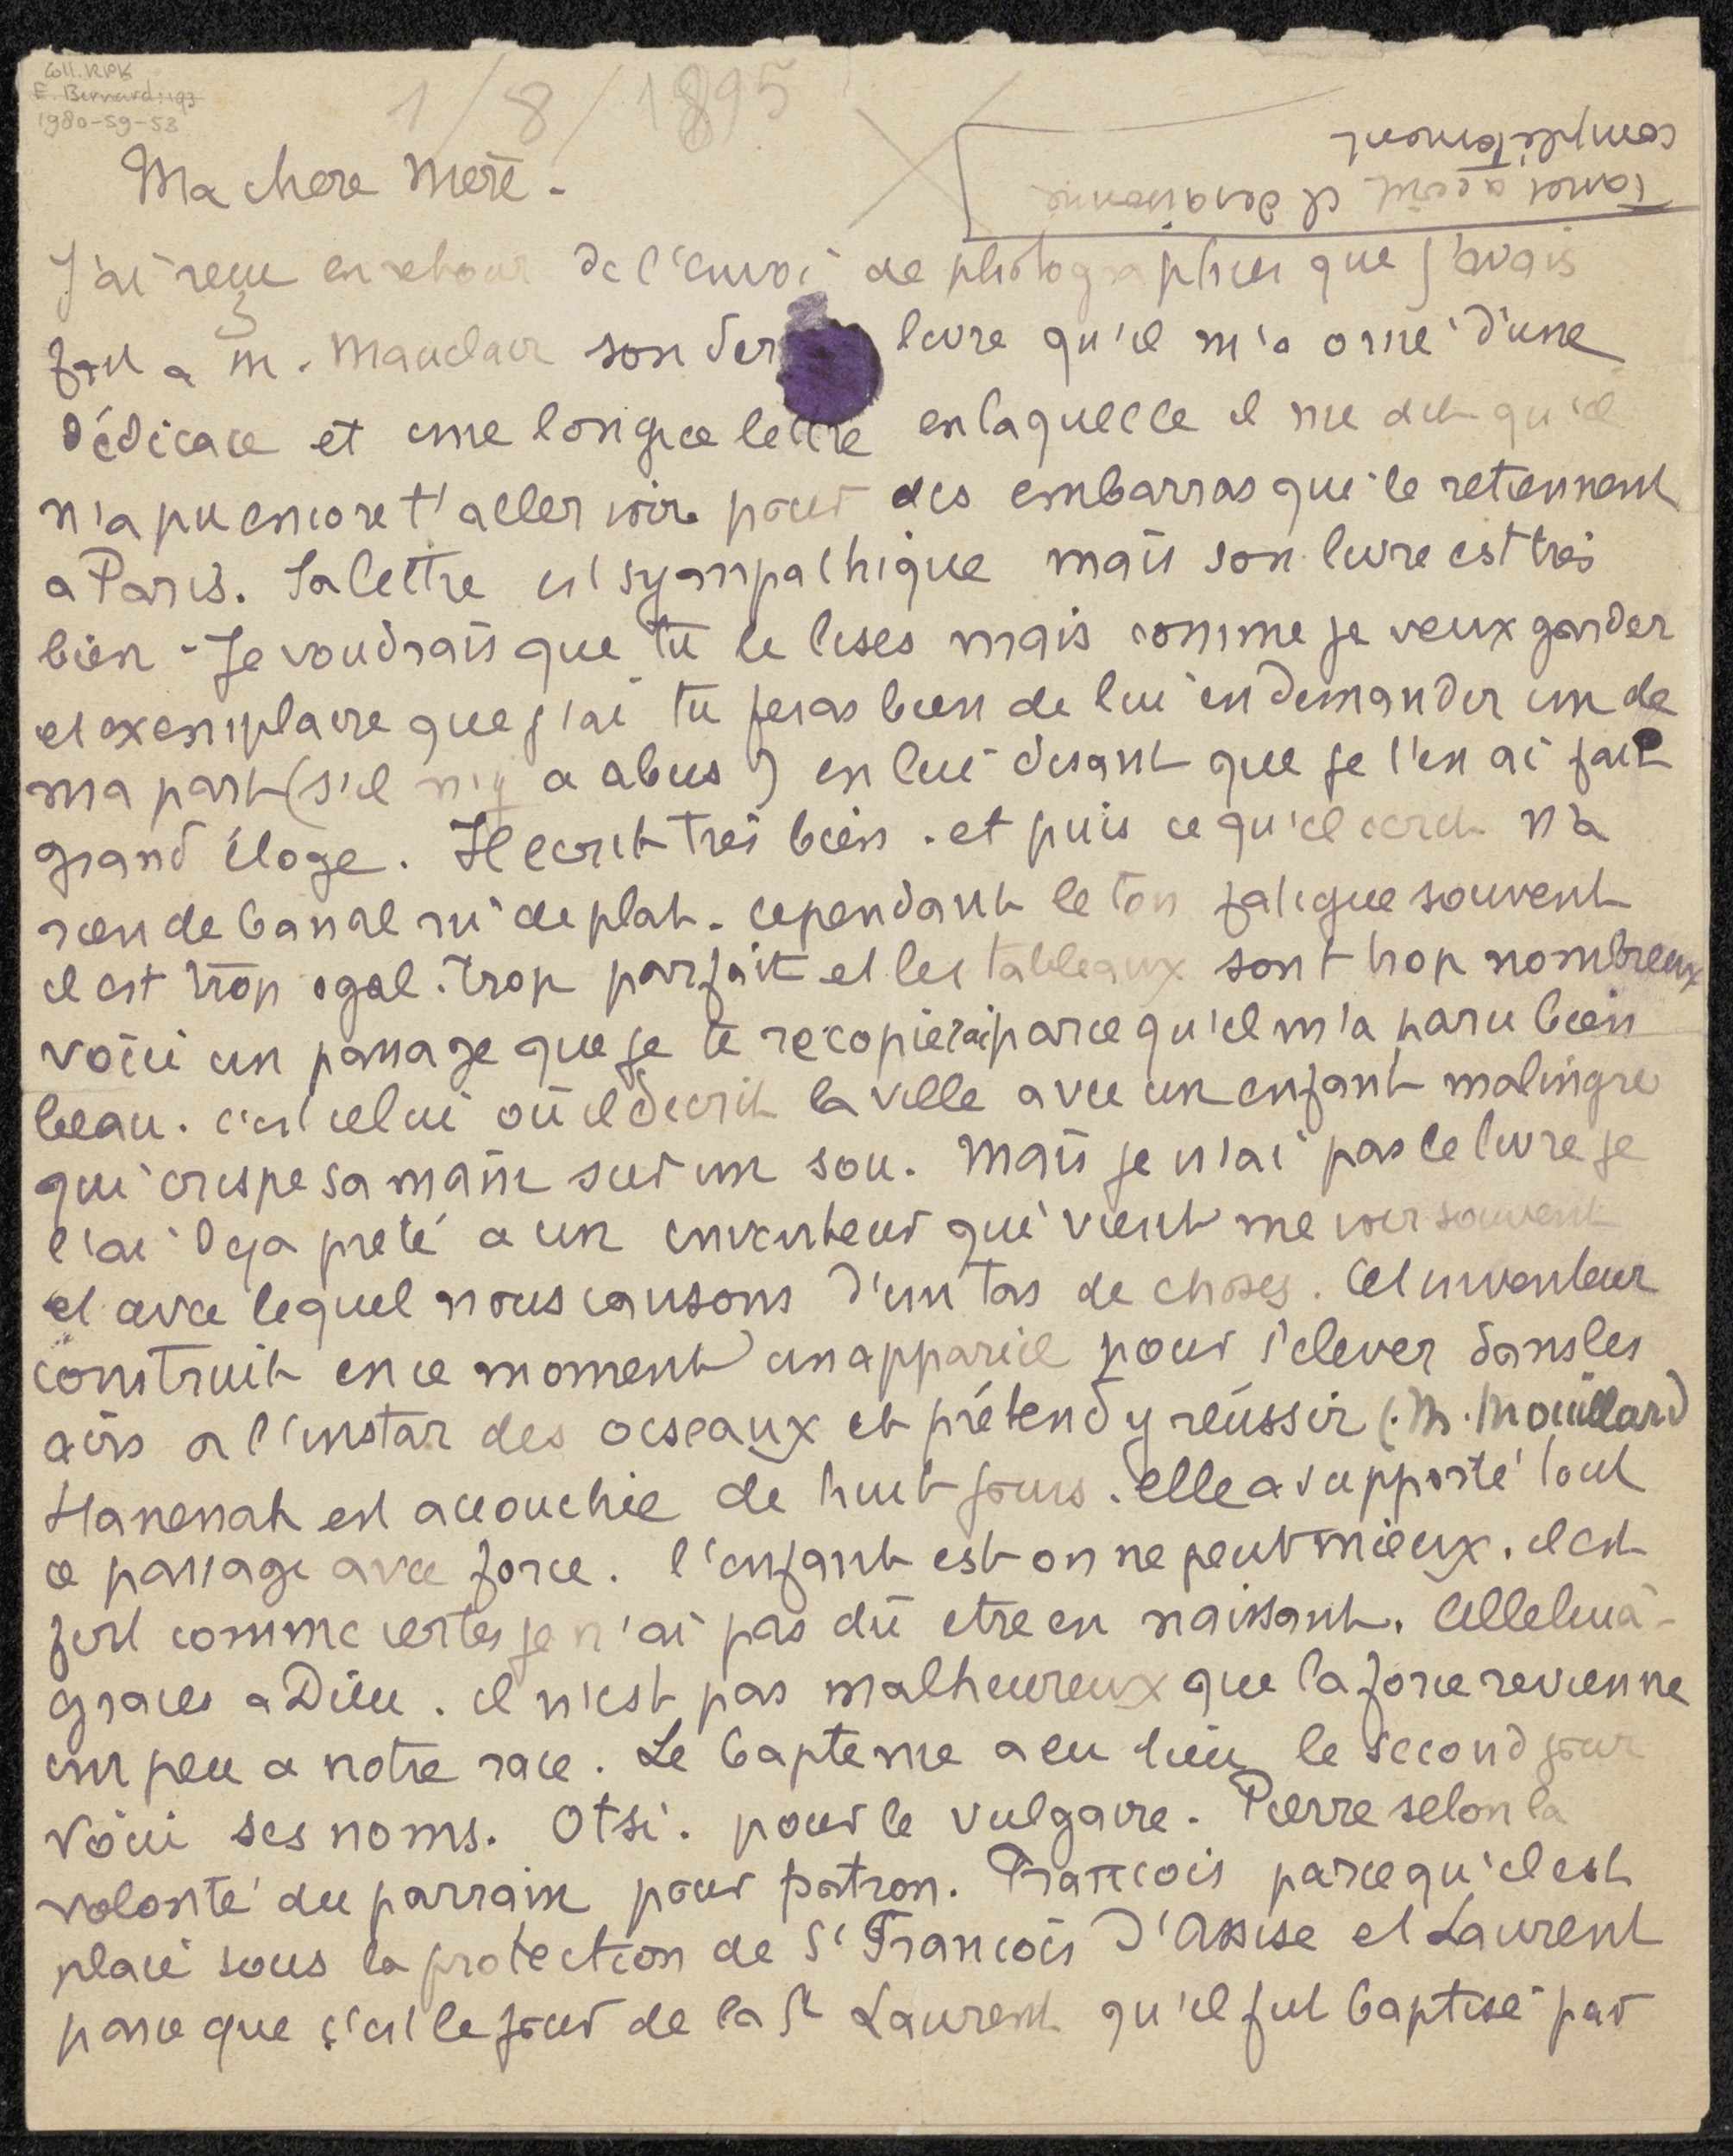 Coll. RPK
E. Bernard: 193
1980-59-53
1/8/1895
complètement
Ma chere Mère.
J'ai reçu en retour de l'envoi de photographies que j'avais
fait a M. Mauclair son der livre qu'il m'a orné d'une
dédicace et une longue lettre en laquelle il me dit qu'il
n'a pu encore t'aller voir pour des embarras qui le retiennent
a Paris. Sa lettre est sympathique mais son livre est très
bien - Je voudrais que tu le lises mais comme je veux garder
et exemplaire que j'ai tu feras bien de lui en demander un de
ma part (s'il n'y a abus) en lui disant que je t'en ai fait
grand éloge. Il ecrit très bien. et puis ce qu'il ecrit n'a
rien de banal ni de plat. cependant le ton fatigue souvent
il est trop egal. trop parfait et les tableaux sont trop nombreux
voici un passage que je te recopierai parce qu'il m'a paru bien
beau. c'est celui où il decrit la ville avec un enfant malingre
qui crispe sa main sur un sou. Mais je n'ai pas le livre je
l'ai deja preté a un inventeur qui vient me voir souvent
et avec lequel nous causons d'un tas de choses. Cet inventeur
construit en ce moment un appareil pour s'elever dans les
airs a l'instar des oiseaux et prétend y réussir (. M. Mouillard)
Hanenah est accouchée de huit jours. elle a supporté tout
ce passage avec force. l'enfant est on ne peut mieux. il est
fort comme certes je n'ai pas dû etre en naissant. Alleluia -
graces a Dieu. il n'est pas malheureux que la force revienne
un peu a notre race. Le bapteme a eu lieu le second jour
Voici ses noms. Otsi. pour le vulgaire. Pierre selon la
volonté du parrain pour patron. Francois parce qu'il est
placé sous la protection de St Francois d'Assise et Laurent
parce que c'est le jour de la St Laurent qu'il fut baptisé par